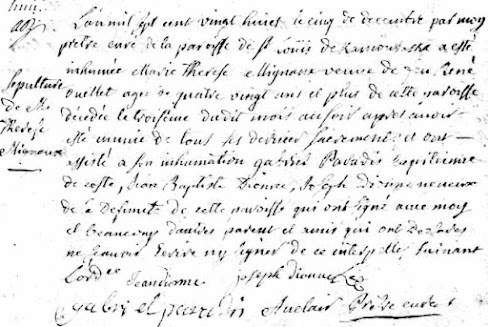 L'an mil sept cent vingt huict le cinq de decembre par moy
prêtre curé de la paroisse de St Louis de Kamouraska a esté
inhumée Marie Therese Mignaux veuve de feu René
ouellet agee de quatre vingt ans et plus de cette paroisse
decedée le troisième dudit mois au soir apres avoir
esté munie de tous ses derniers sacrements et ont
assisté a son inhumation gabriel Paradis capitaine
de coste, Jean Baptiste Dionne, Joseph Dionne neveux
de la Defuncte de cette paroisse qui ont signé avec moy
et beaucoup dautres parent et amis qui ont declarés
ne scavoir Escrire ny signer de ce interpellés suivant
Lord^ce Jean dionne Joseph dionne
gabriel paradis Auclair Prêtre curé
Sepulture
de Me
Therese
Mignaux